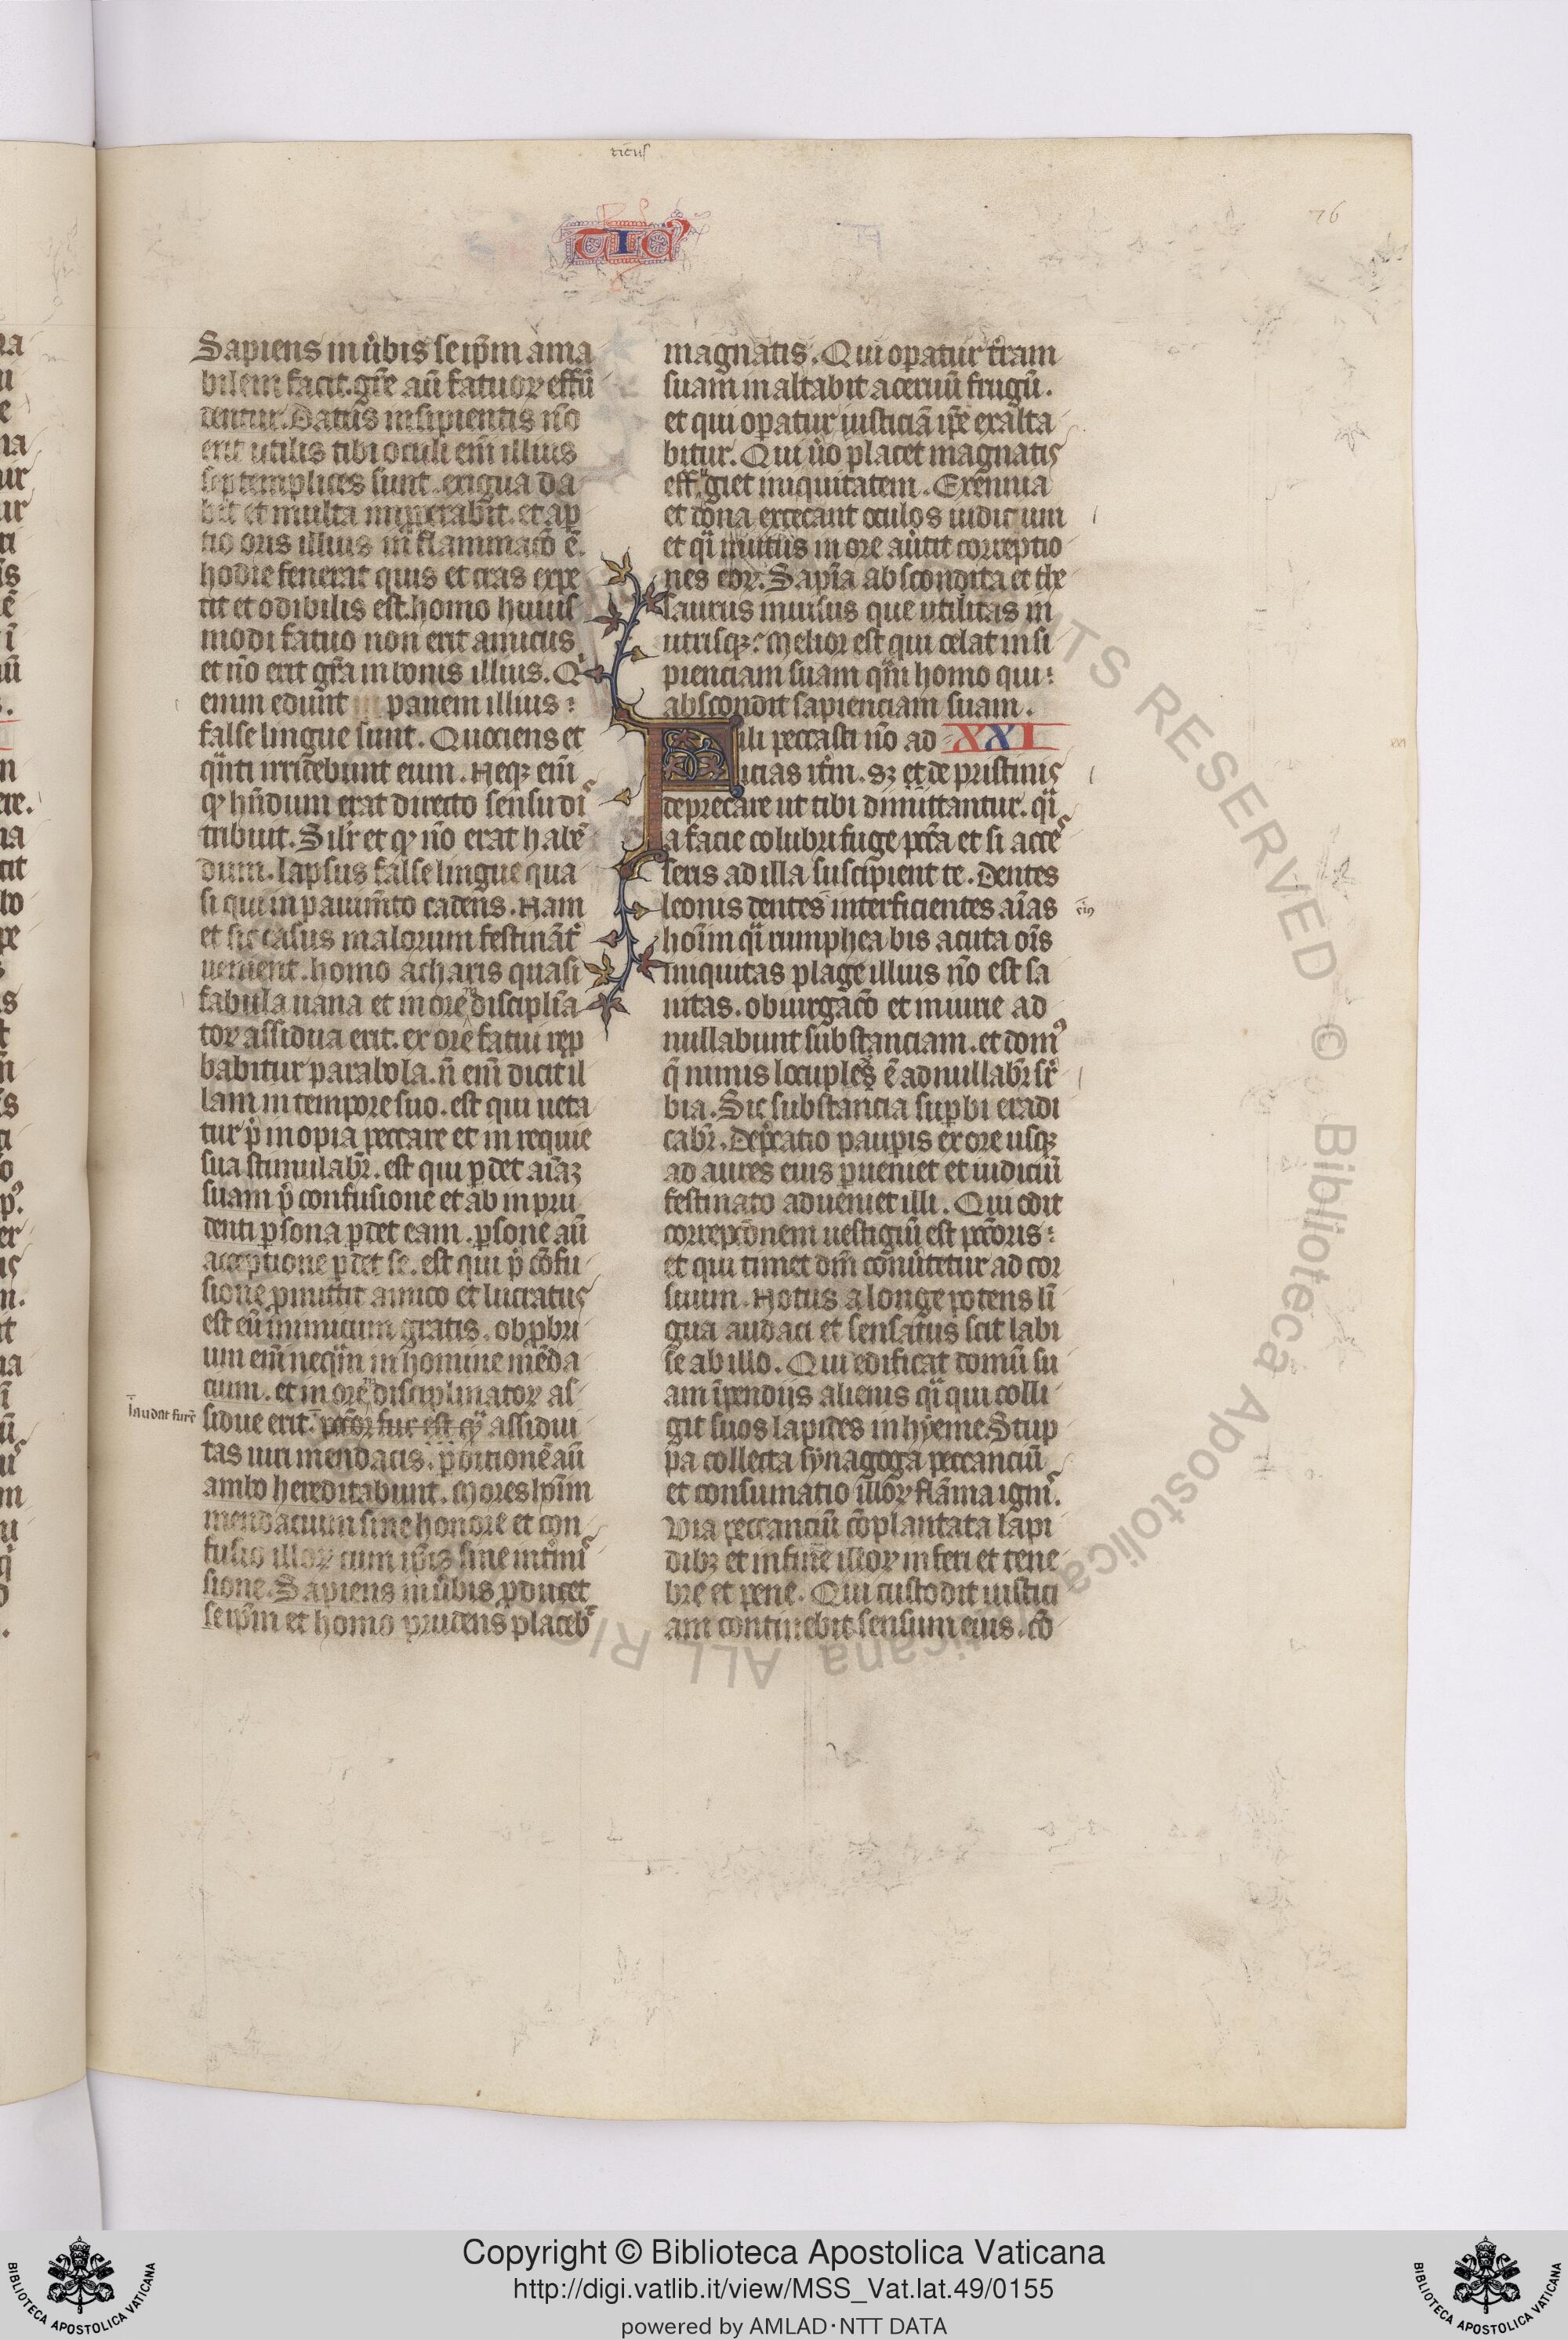 ticus
76
TIC
Sapiens in u̾bis seip̄m ama
bilem facit. gr̄e aū fatuoꝝ effū
dentur. Datus insipientis nō
erit utilis tibi oculi em̄ illius
septemplices sunt. exigua da
bit et multa improperabit. et ap
tio oris illius inflammacō ē.
hodie fenerat quis et cras expe
tit et odibilis est homo huius
modi fatuo non erit amicus
et nō erit gr̄a in bonis illius. Qͥ
enim edunt panem illius:
false lingue sunt. Quociens et
qͣnti irridebunt eum. Neqꝫ em̄
qꝭ hn̄dum erat directo sensu di
tribuit. Silr̄ et qꝭ nō erat habē
dum. lapsus false lingue qua
si qui in pauimēto cadens. Nam
et sic casus malorum festinānt̄
uenient. homo acharis quasi
fabula uana et in ore disciplīa
toꝝ assidua erit. ex ore fatui rep
babitur parabola. n̄ em̄ dicit il
lam in tempore suo. est qui ueta
tur p̄ inopia peccare et in requie
sua stimulabr̄. est qui ꝑdet aīaꝫ
suam p̄ confusione et ab inpru
denti ꝑsona ꝑdet eam. ꝑsone aū
acceptione ꝑdet se. est qui p̄ cōfu
sione ꝓmittit amico et lucratus
est eū inimicum gratis. obꝓbri
um em̄ neqͣm in homine mēda
cium. et in ore disciplinatoꝝ as
sidue erit. pōr fur est qͣ assidui
tas uiri mendacis. ꝑditionē aū
ambo hereditabunt. Mores hoīm
mendacium sine honore et con
fusio illoꝝ cum ip̄is sine int̄mi
sione. Sapiens in u̾bis ꝓducet
seip̄m et homo prudens placeb
laudat furē
magnatis. Qui opatur tr̄am
suam inaltabit aceruū frugū.
et qui opatur iusticiā ip̄e exalta
bitur. Qui u̾o placet magnatis
effugiet iniquitatem. Exennia
et dona excecant oculos iudicum
et qͣi mutus in ore au̾tit correptio
nes eoꝝ. Sapīa abscondita et the
saurus inuisus que utilitas in
utrisqꝫ. Melior est qui celat insi
pienciam suam qͣm homo qui:
abscondit sapienciam suam.
Fili peccasti nō ad XXI
icias it̄m. sꝫ et de pristinis
deprecare ut tibi dimittantur. qͣi
a facie colubri fuge pcc̄a et si acce
seris ad illa suscipient te. Dentes
leonis dentes interficientes aīas
hoīm qͣi rumphea bis acuta oīs
iniquitas plage illius nō est sa
nitas. obiurgacō et iniurie ad
nullabunt substanciam. et domꝰ
q̄ nimis locuples ē adnullabr̄ su
bia. Sic substancia suꝑbi eradi
cabr̄. Dep̄catio paupis ex ore usqꝫ
ad aures eius ꝑueniet et iudiciū
festinato adueniet illi. Qui odit
correpcōnem uestigiū est pcc̄oris:
et qui timet dm̄ conu̾tetur ad cor
suum. Notus a longe potens lī
gua audaci et sensatus scit labi
se ab illo. Qui edificat domū su
am īpendiis alienis qͣi qui colli
git suos lapides in hyeme. Stup
pa collecta synagoga peccanciū
et consumatio illoꝝ flāma ignis.
Via peccanciū cōplantata lapi
dibꝫ et in fine illoꝝ inferi et tene
bre et pene. Qui custodit iustici
am continebit sensum eius. cō
XXI
eiꝰ
ALL RIGHTS RESERVED © Biblioteca Apostolica Vaticana
Copyright © Biblioteca Apostolica Vaticana
http://digi.vatlib.it/view/MSS_Vat.lat.49/0155
powered by AMLAD·NTT DATA
BIBLIOTECA APOSTOLICA VATICANA
BIBLIOTECA APOSTOLICA VATICANA